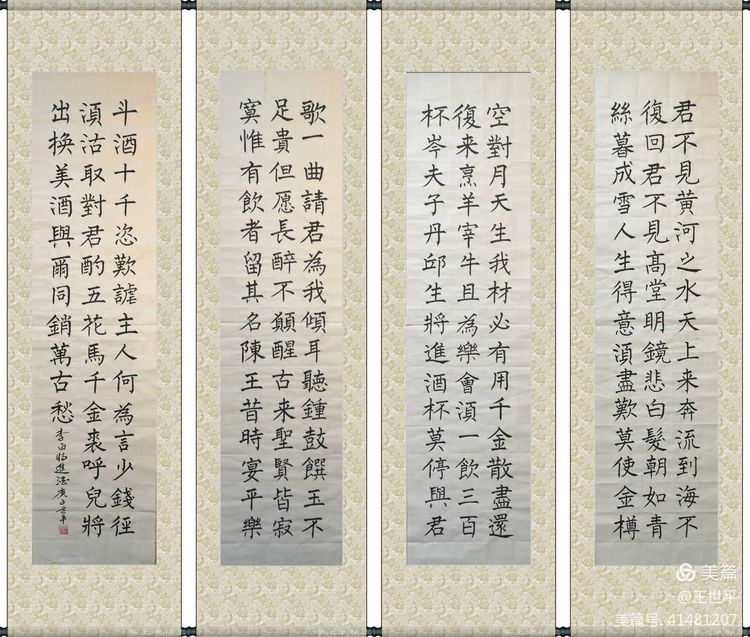 君不見黄河之水天上来奔流到海不
復回君不見髙堂明鏡悲白髮朝如青
絲暮成雪人生得意湏盡歎莫使金樽
空對月天生我材必有用千金散盡還
復来烹羊宰牛且為樂會湏一飲三百
杯岑夫子丹邱生將進酒杯莫停與君
歌一曲請君為我傾耳聽鍾鼓饌玉不
足貴但愿長醉不願醒古来聖賢皆寂
寞惟有飲者留其名陳王昔時宴平樂
斗酒十千恣歎謔主人何為言少錢徑
湏沽取對君酌五花馬千金裘呼兒將
出换美酒與爾同銷萬古愁
李白将進酒庚子世平
美篇
@王世平
美篇号: 41481207